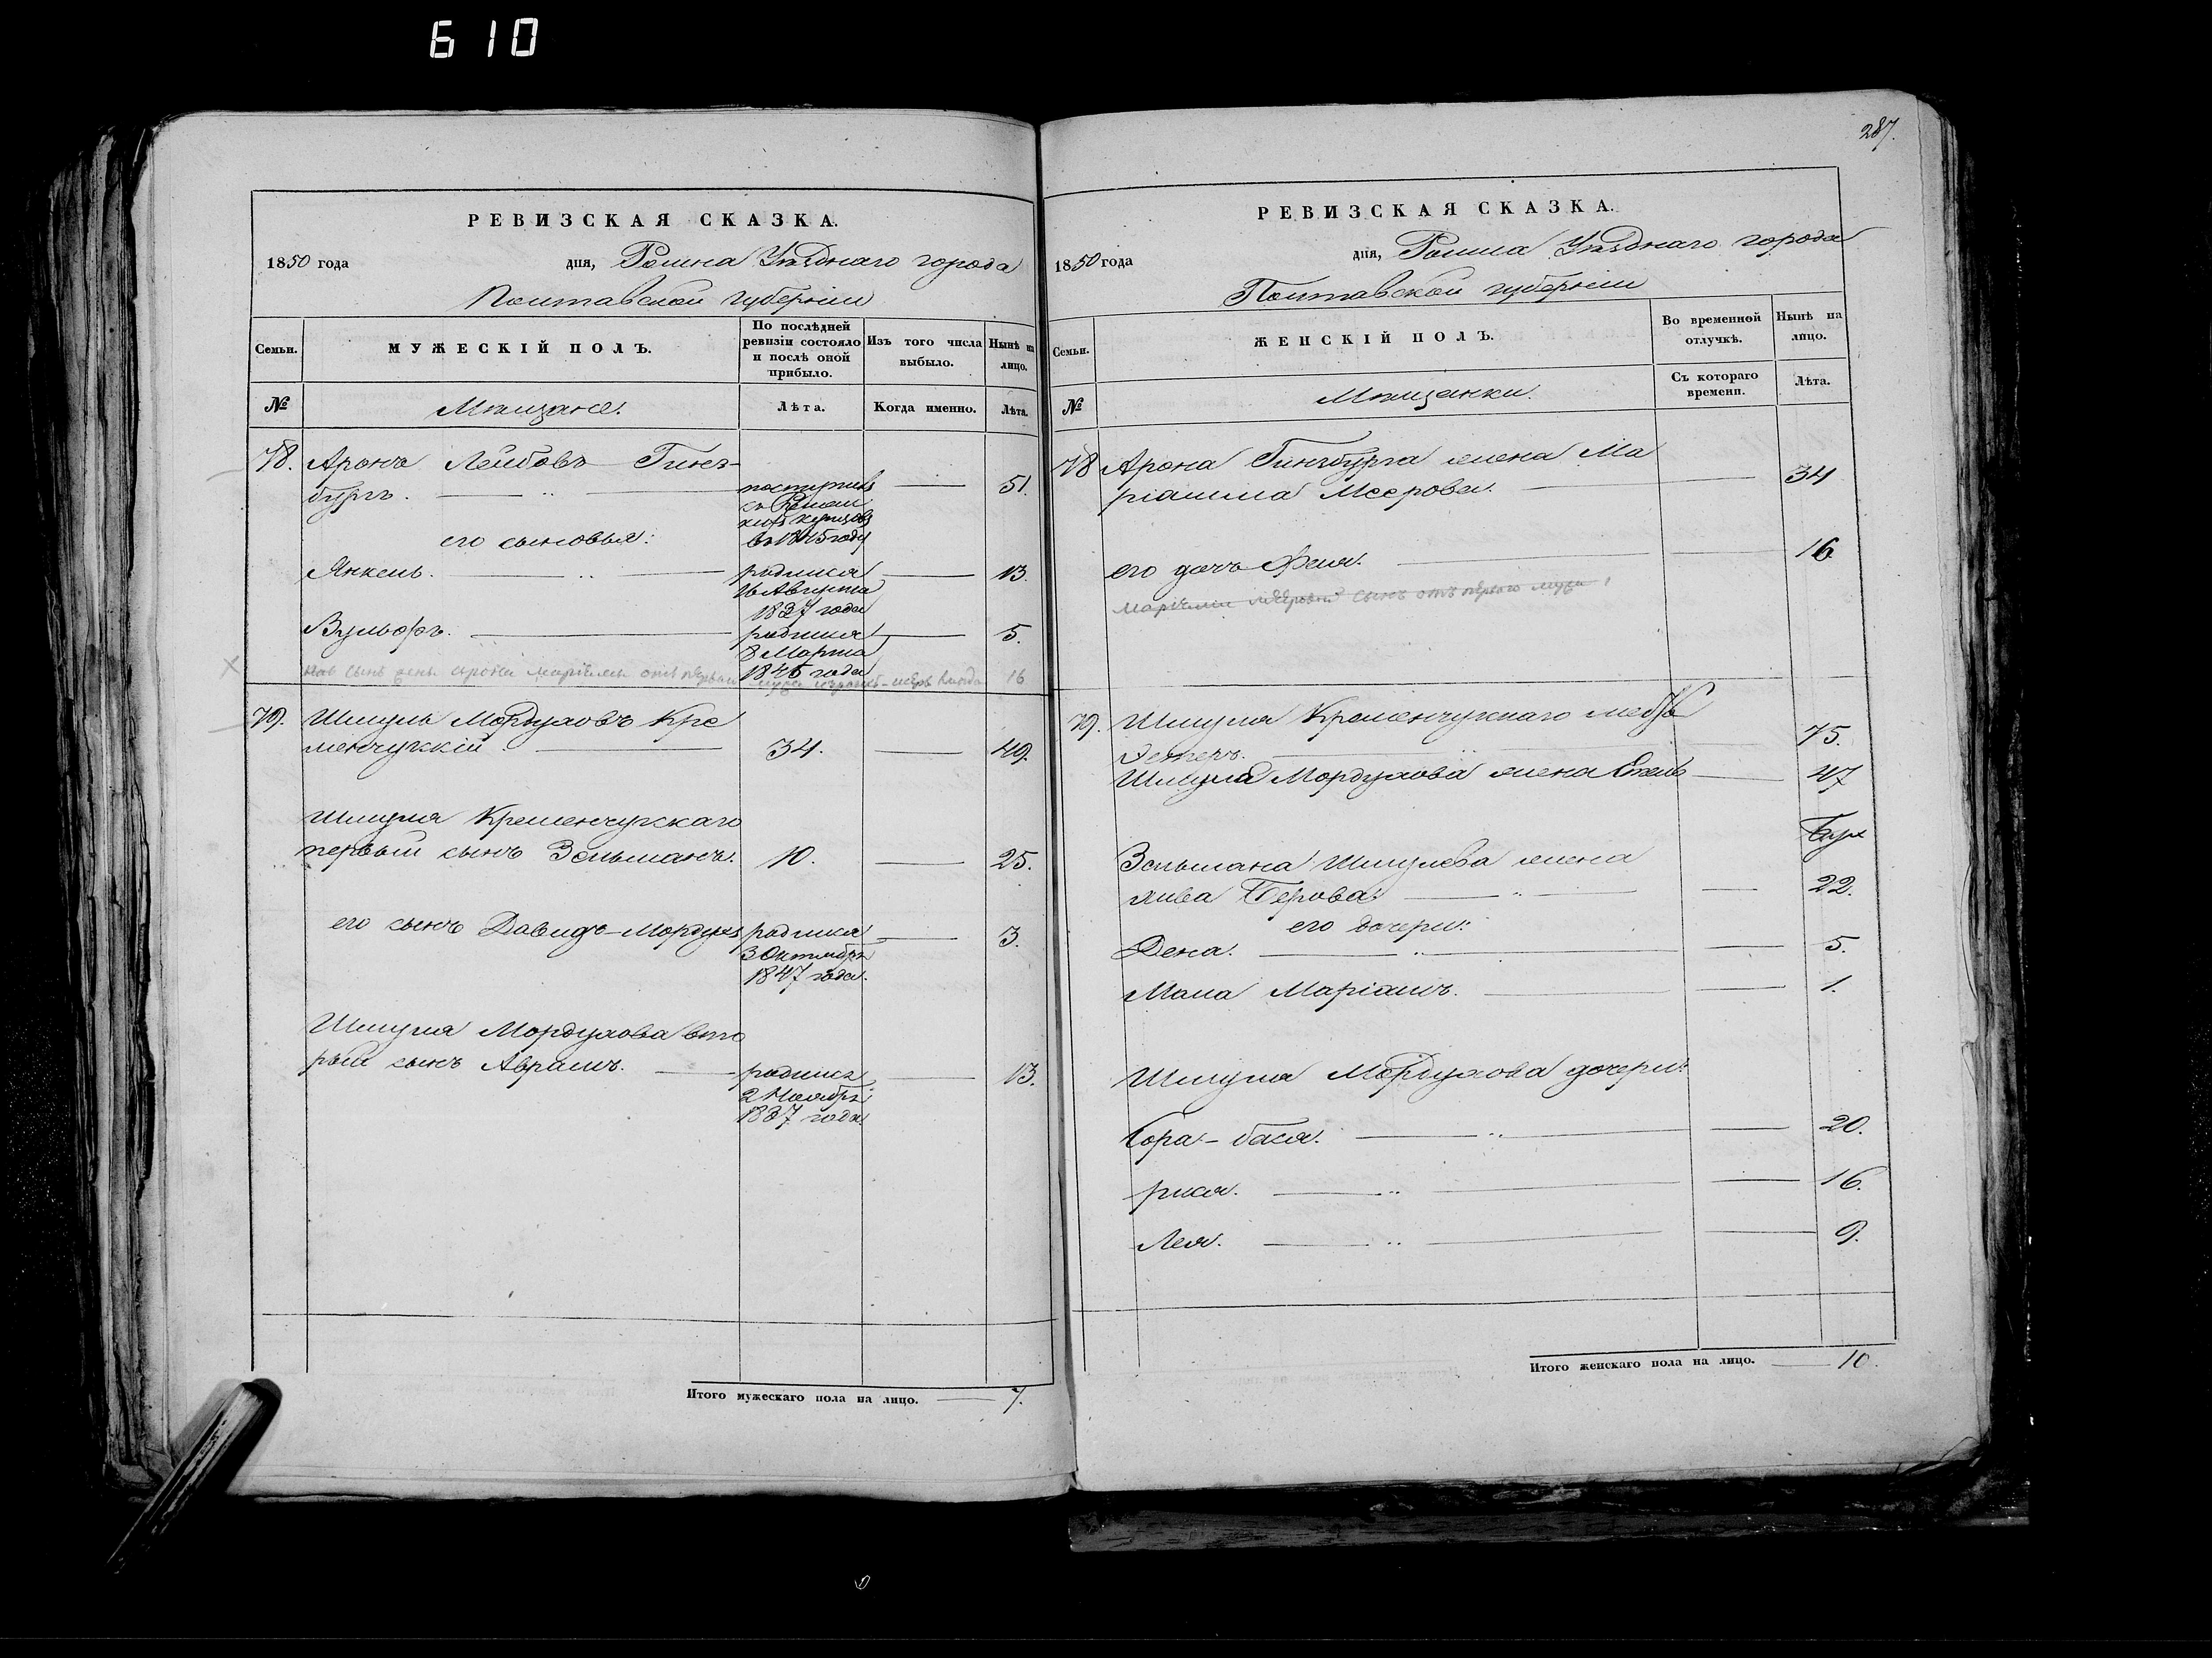 610
РЕВИЗСКАЯ СКАЗКА.
1850 года дня, Ромна Уѣзднаго города
Полтавской губерніи
Семьи.
МУЖЕСКІЙ ПОЛЪ.
По послѣдней ревизіи состояло и послѣ оной прибыло.
Изъ того числа выбыло.
Нынѣ на лицо.
№
Мѣщане.
Лѣта.
Когда именно.
Лѣта.
78. Аронъ Лейбовъ Гинз-
бургъ. поступилъ 51.
купцовъ
его сыновья: въ 1845 году
Янкель. родился 13.
16 Августа
1837 года
Вульфъ. родился 5.
8 Марта
1845 года
сынъ жены Арона Маріямы отъ перваго мужа 16
79. Шмуль Мордуховъ Кре
менчугскій 34. 49.
Шмуля Кременчугскаго
первый сынъ Зельманъ. 10. 25.
его сынъ Давидъ-Мордухъ родился 3.
3 Октября
1847 года.
Шмуля Мордухова вто
рый сынъ Абрамъ. родился 13.
2 Ноября
1837 года.
Итого мужескаго пола на лицо. 7.
287.
РЕВИЗСКАЯ СКАЗКА.
1850 года дня, Ромна Уѣзднаго города
Полтавской губерніи
Семьи.
ЖЕНСКІЙ ПОЛЪ.
Во временной отлучкѣ.
Нынѣ на лицо.
№
Мѣщанки.
Съ котораго времени.
Лѣта.
78 Арона Гинзбурга жена Ма
ріамма Меерова. 34
его дочь Фейга. 16
сынъ отъ перваго мужа
79. Шмуля Кременчугскаго мать
Эстеръ. 75.
Шмуля Мордухова жена 47
Зельмана Шмулева жена
Хива Берова. 22.
его дочери:
Дена. 5.
Мала Маріамъ. 1.
Шмуля Мордухова дочери:
Сора-бася. 20.
рися. 16.
Лея. 9.
Итого женскаго пола на лицо. 10.